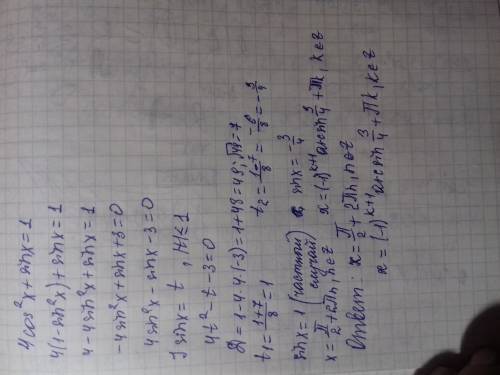 4cos²x + sinx = 1
4(1-sin²x) + sinx = 1
4 - 4sin²x + sinx = 1
-4sin²x + sinx + 3 = 0
4sin²x - sinx - 3 = 0
] sinx = t , |t| ≤ 1
4t² - t - 3 = 0
D = 1 - 4·4·(-3) = 1 + 48 = 49; √49 = 7
t₁ = (1+7)/8 = 1 t₂ = (1-7)/8 = -6/8 = -3/4
sinx = 1 (частный случай) sinx = -3/4
x = π/2 + 2πn, n∈z x = (-1)^(k+1) arcsin 3/4 + πk, k∈z
Ответ: x = π/2 + 2πn, n∈z
x = (-1)^(k+1) arcsin 3/4 + πk, k∈z